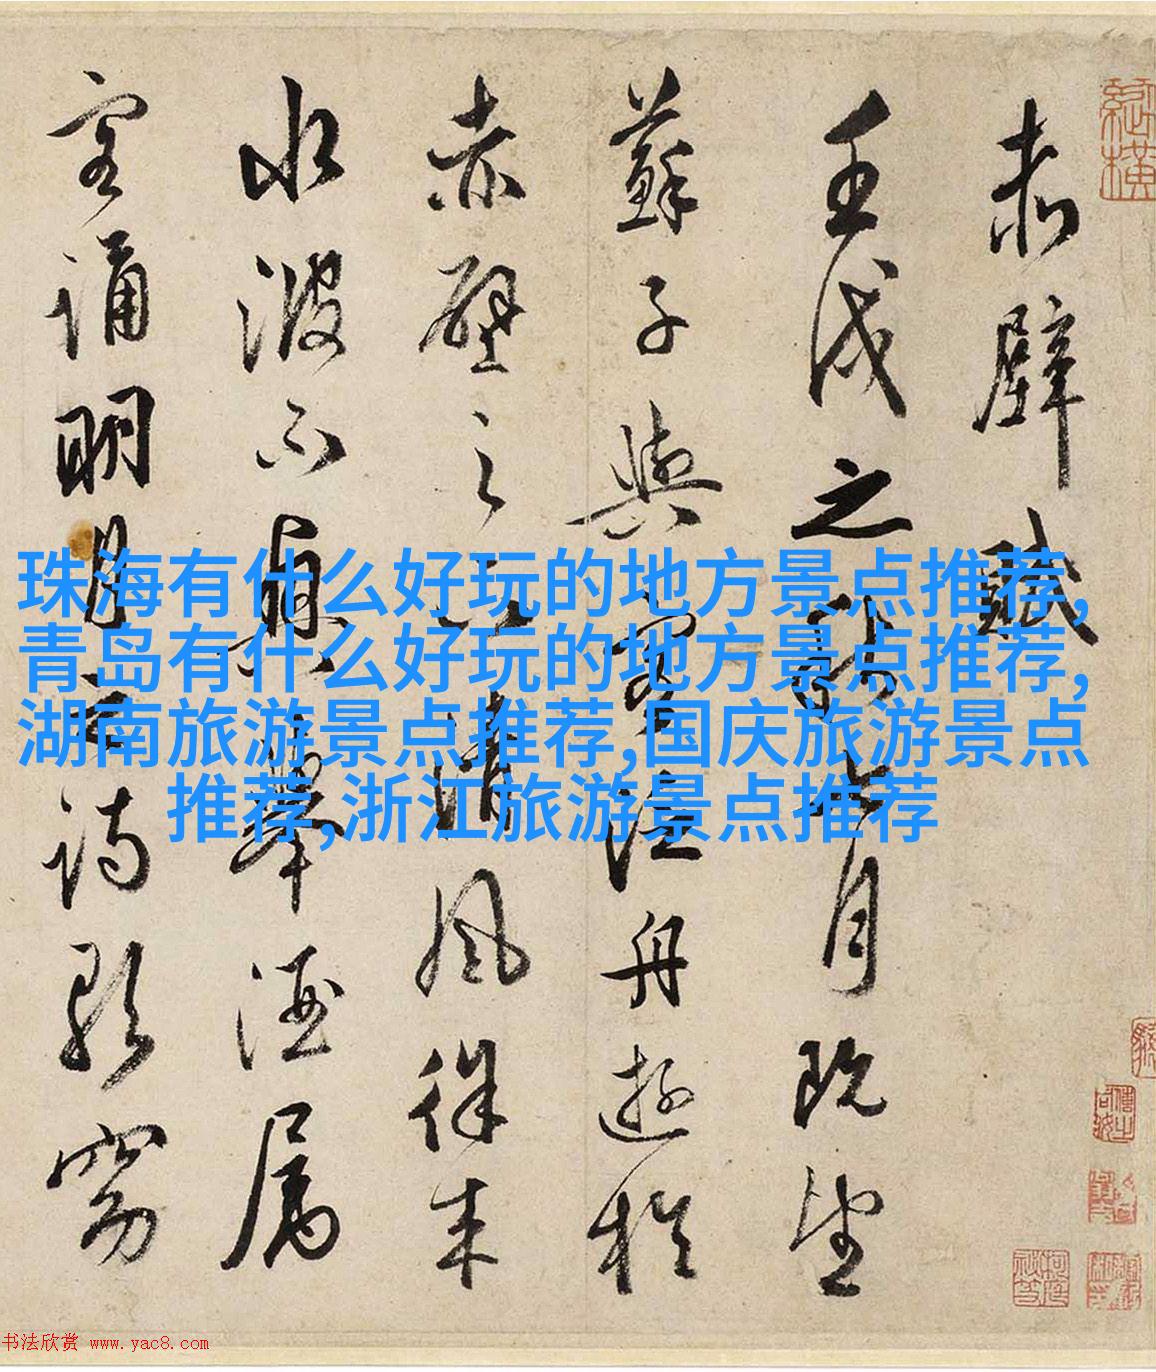 赤壁賦
壬戌之秋七月既望
蘇子與客泛舟遊於
赤壁之下清風徐来
水波不興舉酒屬
客誦明月之詩歌窈
珠海有什么好玩的地方景点推荐,
青岛有什么好玩的地方景点推荐,
湖南旅游景点推荐,国庆旅游景点
推荐,浙江旅游景点推荐
书法欣赏 www.yac8.com